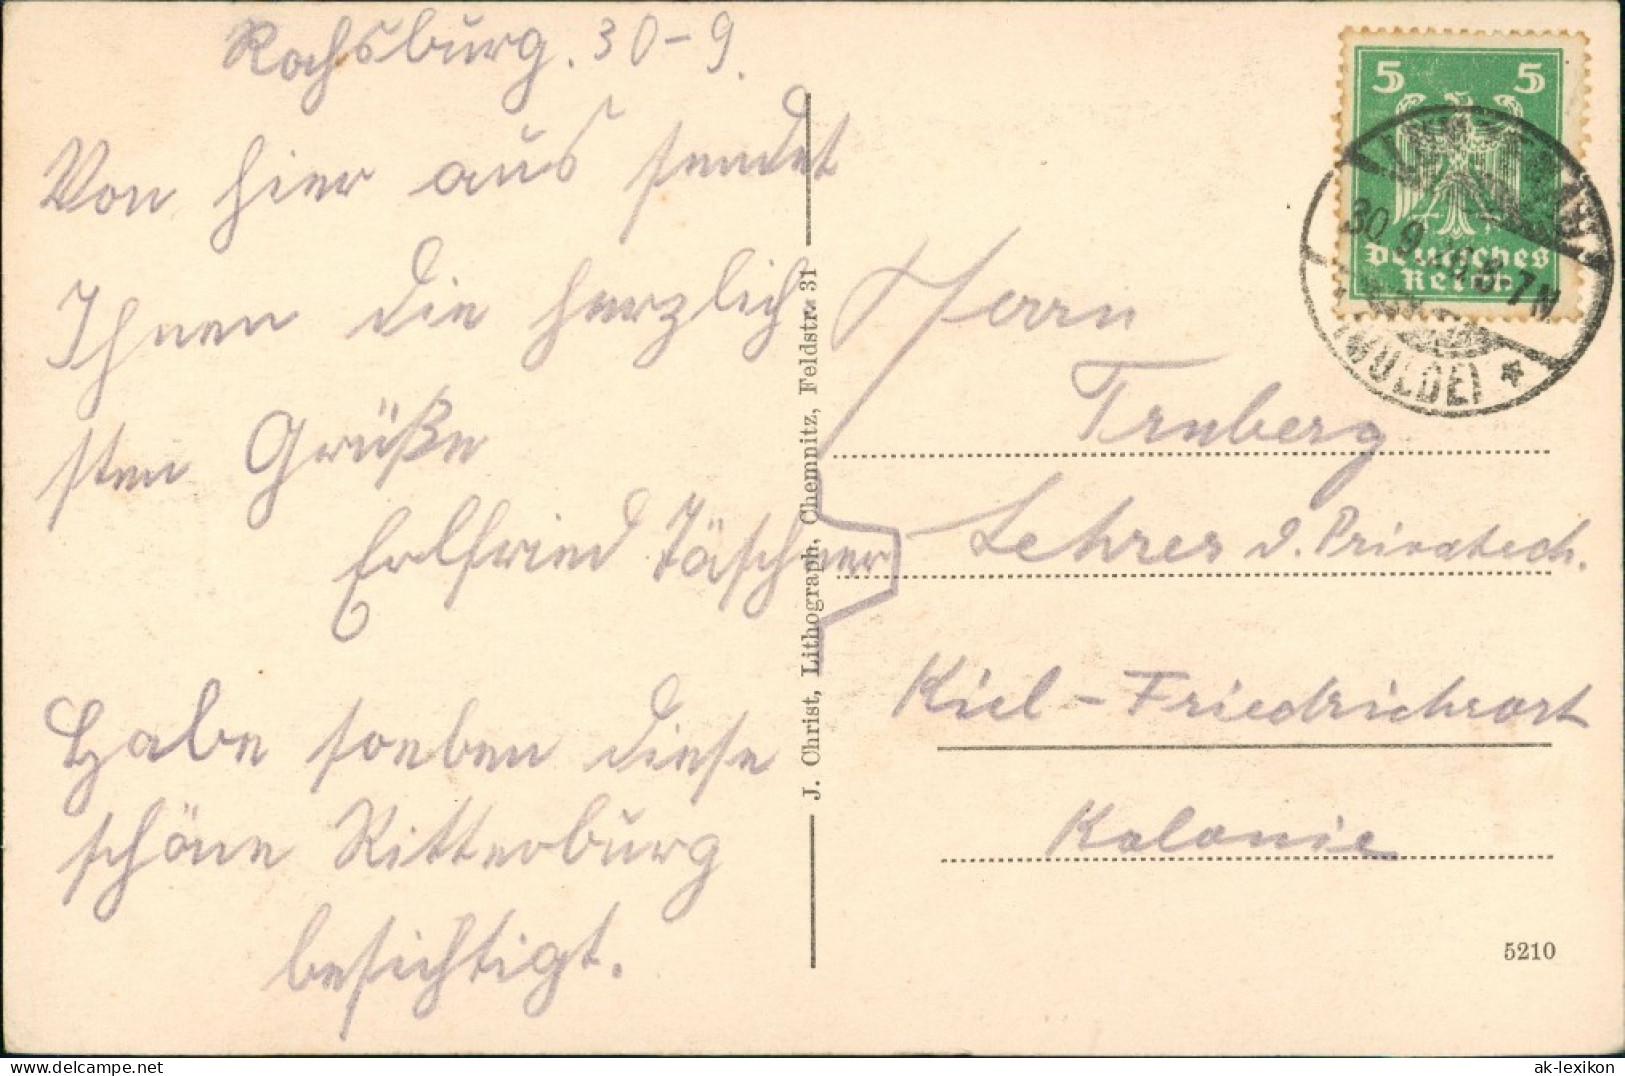 Rochsburg. 30-9.
Von hier aus sendet
Ihnen die herzlich
sten Grüße
Erlfried Täschner
Habe soeben diese
schöne Ritterburg
besichtigt.
J. Christ, Lithograph, Chemnitz, Feldstr. 31
5 5
Deutsches
Reich
30 9 7 N
(MULDE) *
Herrn
Truberg
Lehrer d. Privatsch.
Kiel-Friedrichsort
Kolonie
5210
delcampe.net
ak-lexikon